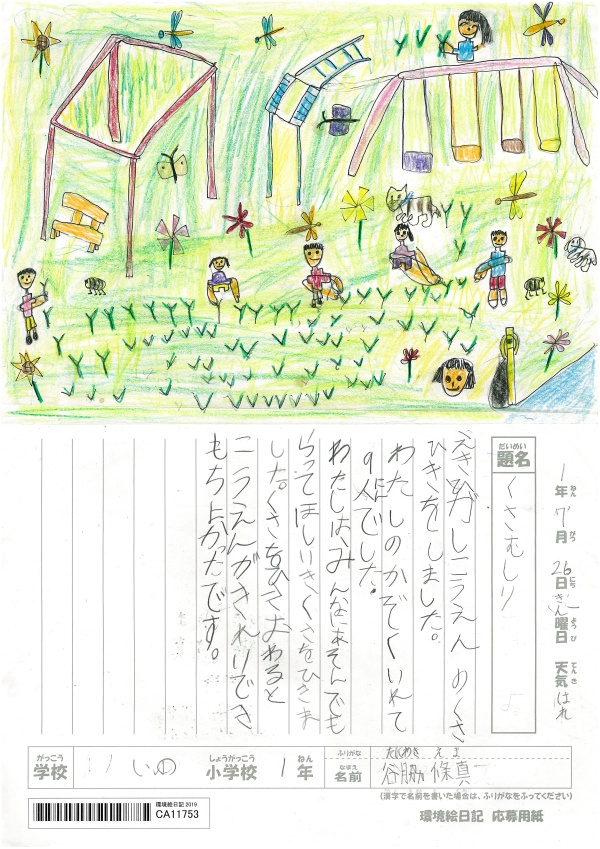 1年7月26日きん曜日 天気 はれ
ねん がつ にち ようび てんき
だいめい
題名
くさむしり
こうえんのくさ
ひきをしました。
わたしのかぞくいれて
9人でした。
わたしは、みんなにあそんでも
らってほしい くさをひきま
した。くさをひきおわると
こうえんがきれいでき
もちよかったです。
がっこう しょうがっこう ねん
学校 いの 小学校 1年
ふりがな たにわき えま
なまえ
名前 谷脇 條真
(漢字で名前を書いた場合は、ふりがなをふってください)
環境絵日記 2019
CA11753
環境絵日記 応募用紙